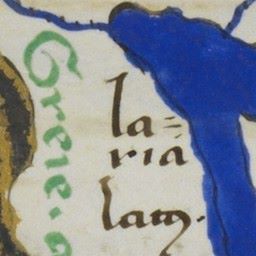 Grece.
la=
ria
lam.